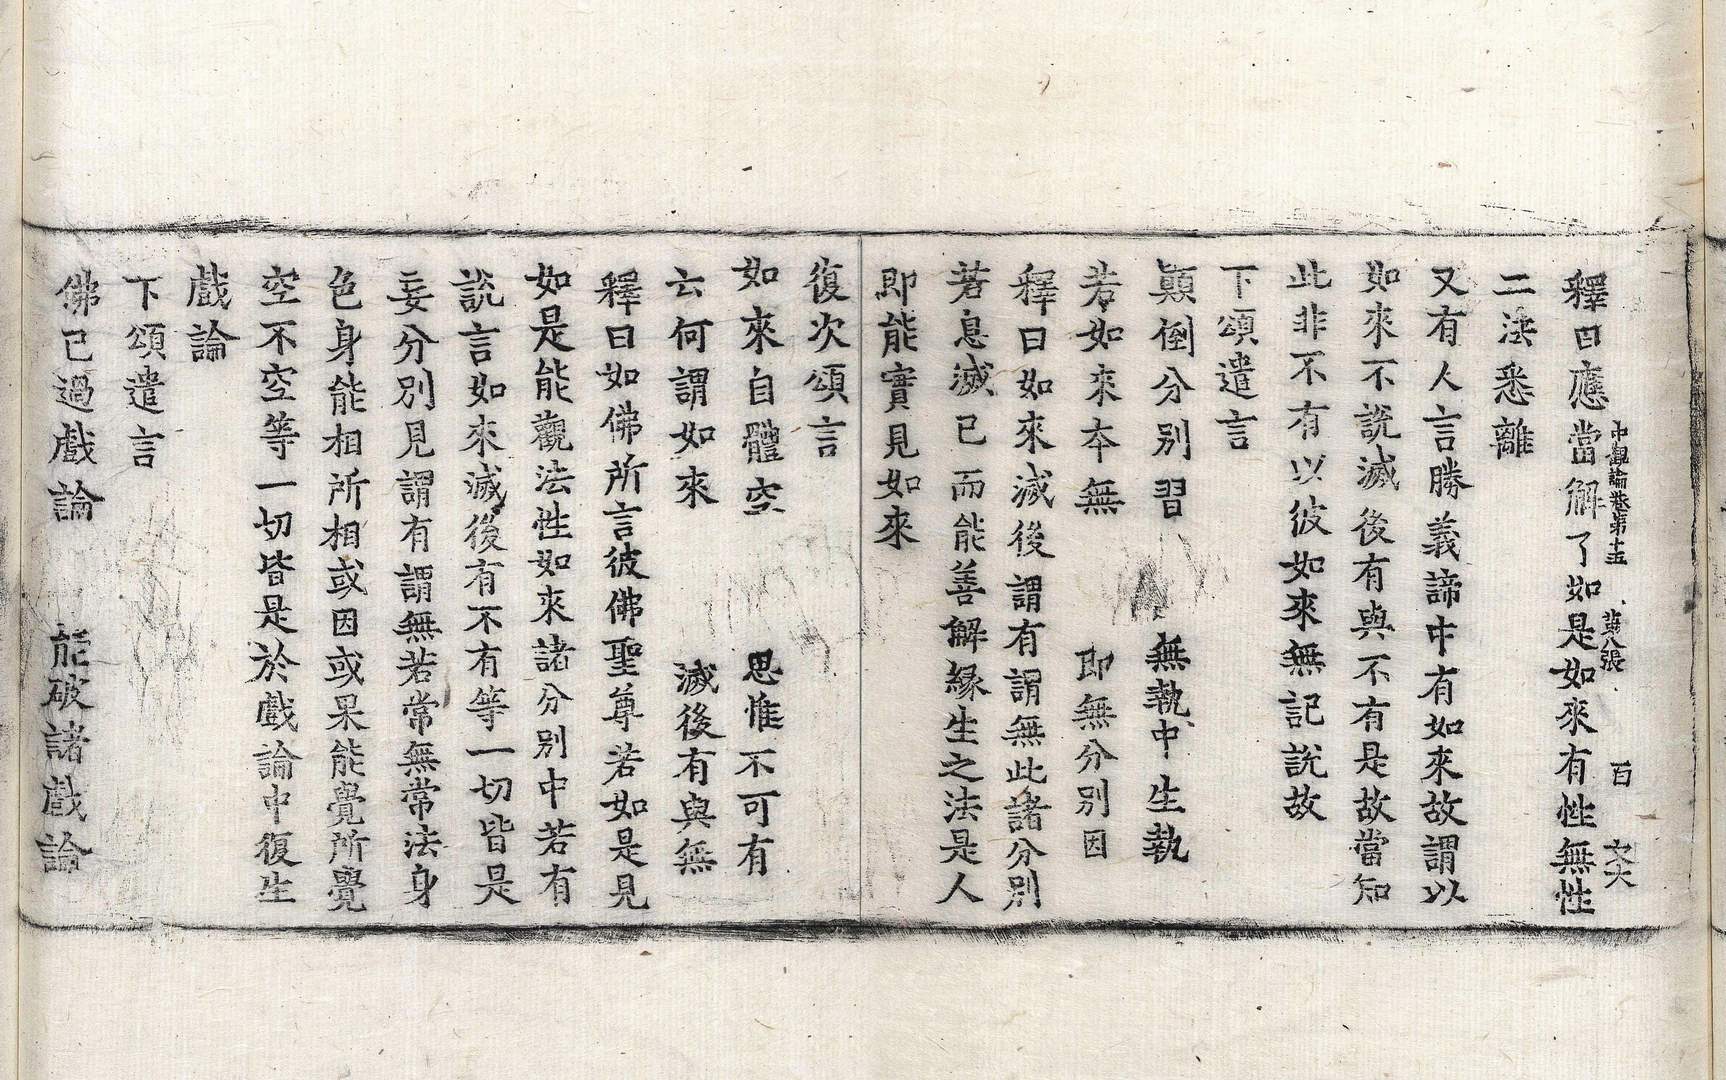 中觀論卷第十五　第八張　百　文六
釋曰應當解了如是如來有性無性
二法悉離
又有人言勝義諦中有如來故謂以
如來不說滅後有與不有是故當知
此非不有以彼如來無記說故
下頌遣言
顛倒分別習　無執中生執
若如來本無　即無分別因
釋曰如來滅後謂有謂無此諸分別
若息滅已而能善解緣生之法是人
即能實見如來
復次頌言
如來自體空　思惟不可有
云何謂如來　滅後有與無
釋曰如佛所言彼佛聖尊若如是見
如是能觀法性如來諸分別中若有
說言如來滅後有不有等一切皆是
妄分別見謂有謂無若常無常法身
色身能相所相或因或果能覺所覺
空不空等一切皆是於戲論中復生
戲論
下頌遣言
佛已過戲論　能破諸戲論